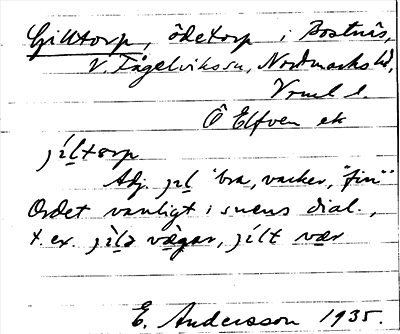 Gilltorp, ödetorp i Bostnäs,
V. Fågelviks sn, Nordmarks hd,
Vrml l.
Ö Elfven ek
jíltorp
Adj. jil 'bra, vacker, "fin"'
Ordet vanligt i snens dial.,
t. ex. jìlə vägar, jílt vær
E. Andersson 1935.